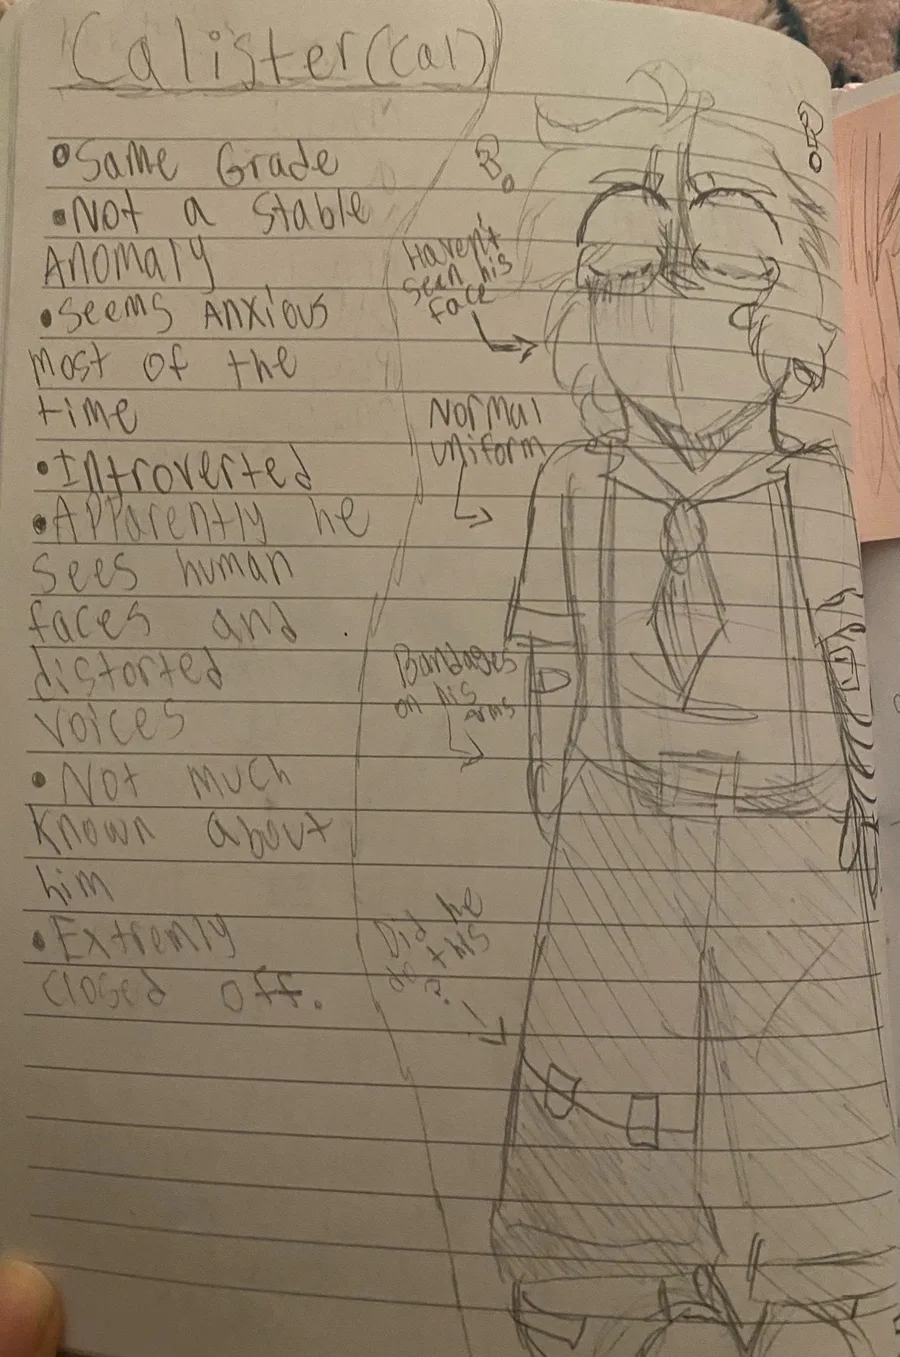 Calister(Cal)
•Same Grade
•Not a stable
Anomaly
•Seems Anxious
most of the
time
•Introverted
•Apparently he
sees human
faces and
distorted
voices
•Not much
known about
him
•Extremly
closed off.
Haven't
seen his
face
Normal
uniform
Bandages
on his
arms
Did he
do this
?